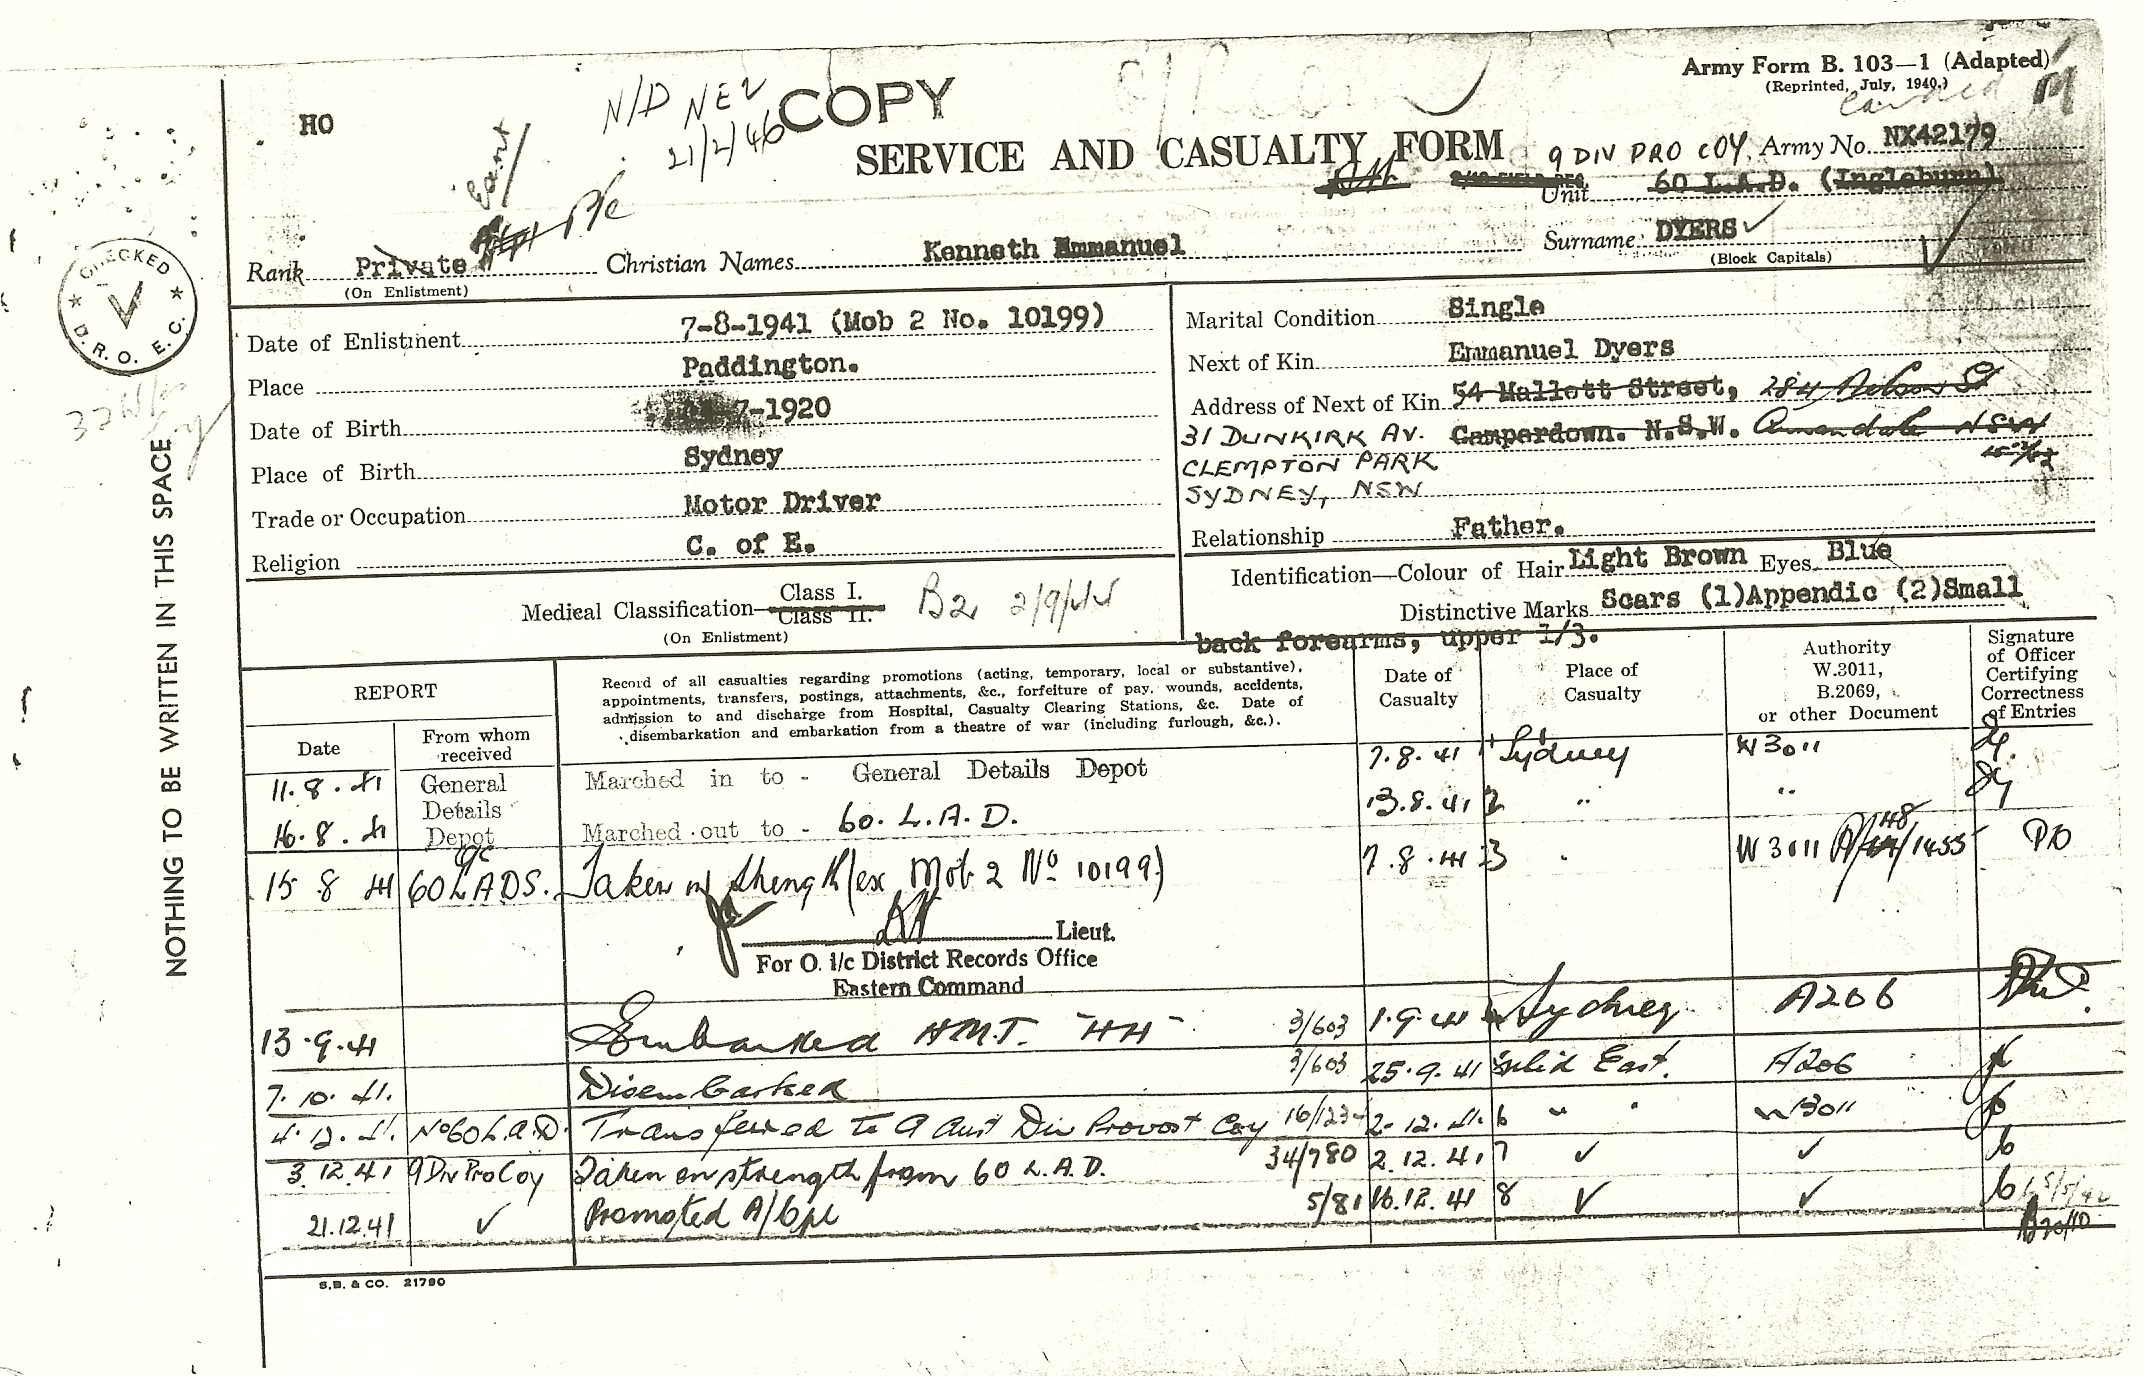 Army Form B. 103—1 (Adapted)
(Reprinted, July, 1940.)
HO
N/D NEZ
21/2/46
COPY
SERVICE AND CASUALTY FORM
9 DIV PRO COY. Army No. NX42179
Unit 60 L.A.D. (Ingleburn)
Rank Private Pte Christian Names Kenneth Emmanuel Surname DYERS
(On Enlistment) (Block Capitals)
CHECKED
D. R. O. E. C.
NOTHING TO BE WRITTEN IN THIS SPACE
Date of Enlistment 7-8-1941 (Mob 2 No. 10199)
Place Paddington.
Date of Birth 7-1920
Place of Birth Sydney
Trade or Occupation Motor Driver
Religion C. of E.
Medical Classification Class I.
Class II.
(On Enlistment)
B2 2/9/44
Marital Condition Single
Next of Kin Emmanuel Dyers
Address of Next of Kin 54 Mallott Street, 284 Nelson St
31 DUNKIRK AV. Camperdown. N.S.W. Annandale NSW
CLEMPTON PARK
SYDNEY, NSW
Relationship Father.
Identification—Colour of Hair Light Brown Eyes Blue
Distinctive Marks Scars (1)Appendic (2)Small
back forearms, upper 1/3.
REPORT
Date
From whom received
Record of all casualties regarding promotions (acting, temporary, local or substantive),
appointments, transfers, postings, attachments, &c., forfeiture of pay, wounds, accidents,
admission to and discharge from Hospital, Casualty Clearing Stations, &c. Date of
disembarkation and embarkation from a theatre of war (including furlough, &c.).
Date of Casualty
Place of Casualty
Authority W.3011, B.2069, or other Document
Signature of Officer Certifying Correctness of Entries
11.8.41 General Marched in to - General Details Depot 7.8.41 1 Sydney W3011
Details 13.8.41 2 " "
16.8.41 Depot Marched out to - 60. L.A.D.
15 8 41 60 LADS. Taken on strength (ex Mob 2 No 10199) 7.8.41 3 W3011 /1455 PO
Lieut.
For O. i/c District Records Office
Eastern Command
13.9.41 Embarked HMT. "HH" 3/603 1.9.41 4 Sydney A206
7.10.41. Disembarked 3/603 25.9.41 5 Mid East. A206
4.12.41. No 60 L.A.D. Transferred to 9 Aust Div Provost Coy 16/123 2.12.41. 6 " " W3011
3.12.41 9 Div Pro Coy Taken on strength from 60 L.A.D. 34/780 2.12.41 7 ✓ ✓
21.12.41 ✓ Promoted A/Cpl 5/81 16.12.41 8 ✓ ✓
S.B. & CO. 21790